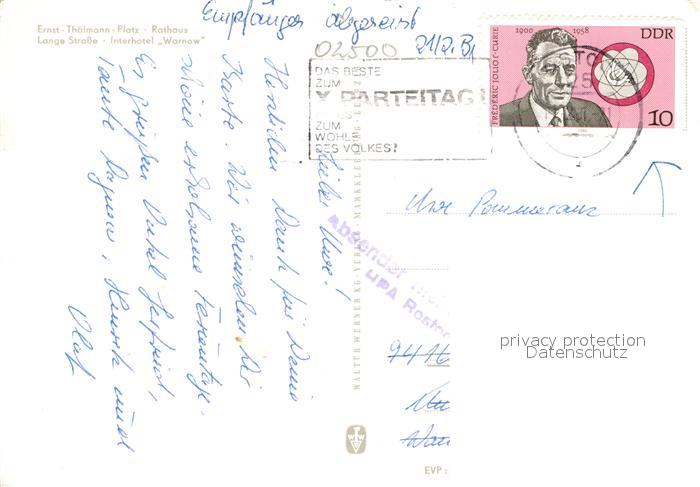 Ernst-Thälmann-Platz · Rathaus
Lange Straße · Interhotel „Warnow"
Empfänger abgereist
02500
21/2. Bj
DAS BESTE
ZUM
X PARTEITAG
ZUM
WOHLE
DES VOLKES!
1900 1958
DDR
FRÉDÉRIC JOLIOT-CURIE
10
Lieber Uwe!
Herzlichen Dank für Deine
Karte. Wir wünschen Dir
schöne erholsame Ferientage.
Es grüßen Onkel
Tante Dagmar, Henrik und
Olaf
WALTER WERNER KG · VERLAG MARKKLEEBERG · LEIPZIG
Absender
UPA Rostock
Uwe Pommeranz
9416
privacy protection
Datenschutz
EVP :